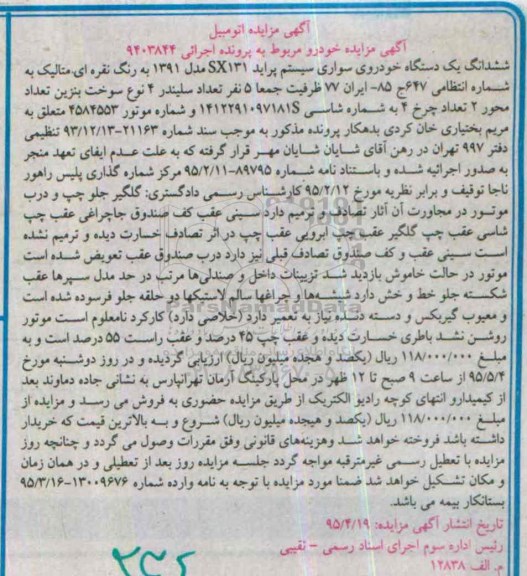 آگهی مزایده اتومبیل
آگهی مزایده خودرو مربوط به پرونده اجرائی ۹۴۰۳۸۴۴
ششدانگ یک دستگاه خودروی سواری سیستم پراید SX۱۳۱ مدل ۱۳۹۱ به رنگ نقره ای-متالیک به
شماره انتظامی ۶۴۷ج ۸۵- ایران ۷۷ ظرفیت جمعا ۵ نفر تعداد سیلندر ۴ نوع سوخت بنزین تعداد
محور ۲ تعداد چرخ ۴ به شماره شاسی S۱۴۱۲۲۹۱۰۹۷۱۸۱ و شماره موتور ۴۵۸۴۵۵۳ متعلق به
مریم بختیاری خان کردی بدهکار پرونده مذکور به موجب سند شماره ۲۱۱۶۳-۹۳/۱۲/۱۳ تنظیمی
دفتر ۹۹۷ تهران در رهن آقای شایان شایان مهر قرار گرفته که به علت عدم ایفای تعهد منجر
به صدور اجرائیه شده و باستناد نامه شماره ۸۹۷۹۵-۹۵/۲/۱۱ مرکز شماره گذاری پلیس راهور
ناجا توقیف و برابر نظریه مورخ ۹۵/۲/۱۲ کارشناس رسمی دادگستری: گلگیر جلو چپ و درب
موتور در مجاورت آن آثار تصادف و ترمیم دارد سینی عقب کف صندوق جاچراغی عقب چپ
شاسی عقب چپ گلگیر عقب چپ ابرویی عقب چپ در اثر تصادف خسارت دیده و ترمیم نشده
است سینی عقب و کف صندوق تصادف قبلی نیز دارد درب صندوق عقب تعویض شده است
موتور در حالت خاموش بازدید شد تزیینات داخل و صندلی‌ها مرتب در حد مدل سپرها عقب
شکسته جلو خط و خش دارد شیشه‌ها و چراغها سال لاستیکها دو حلقه جلو فرسوده شده است
و معیوب گیربکس و دسته دنده نیاز به تعمیر دارد (خلاصی دارد) کارکرد نامعلوم است موتور
روشن نشد باطری خسارت دیده و عقب چپ ۴۵ درصد و عقب راست ۵۵ درصد است و به
مبلغ ۱۱۸/۰۰۰/۰۰۰ ریال (یکصد و هجده میلیون ریال) ارزیابی گردیده و در روز دوشنبه مورخ
۹۵/۵/۴ از ساعت ۹ صبح تا ۱۲ ظهر در محل پارکینگ آرمان تهرانپارس به نشانی جاده دماوند بعد
از کیمیدارو انتهای کوچه رادیو الکتریک از طریق مزایده حضوری به فروش می رسد و مزایده از
مبلغ ۱۱۸/۰۰۰/۰۰۰ ریال (یکصد و هیجده میلیون ریال) شروع و به بالاترین قیمت که خریدار
داشته باشد فروخته خواهد شد وهزینه‌های قانونی وفق مقررات وصول می گردد و چنانچه روز
مزایده با تعطیل رسمی غیرمترقبه مواجه گردد جلسه مزایده روز بعد از تعطیلی و در همان زمان
و مکان تشکیل خواهد شد ضمنا مورد مزایده با توجه به نامه وارده شماره ۱۳۰۰۹۶۷۶-۹۵/۳/۱۶
بستانکار بیمه می باشد.
تاریخ انتشار آگهی مزایده: ۹۵/۴/۱۹
رئیس اداره سوم اجرای اسناد رسمی - نقیبی
م. الف ۱۲۸۳۸